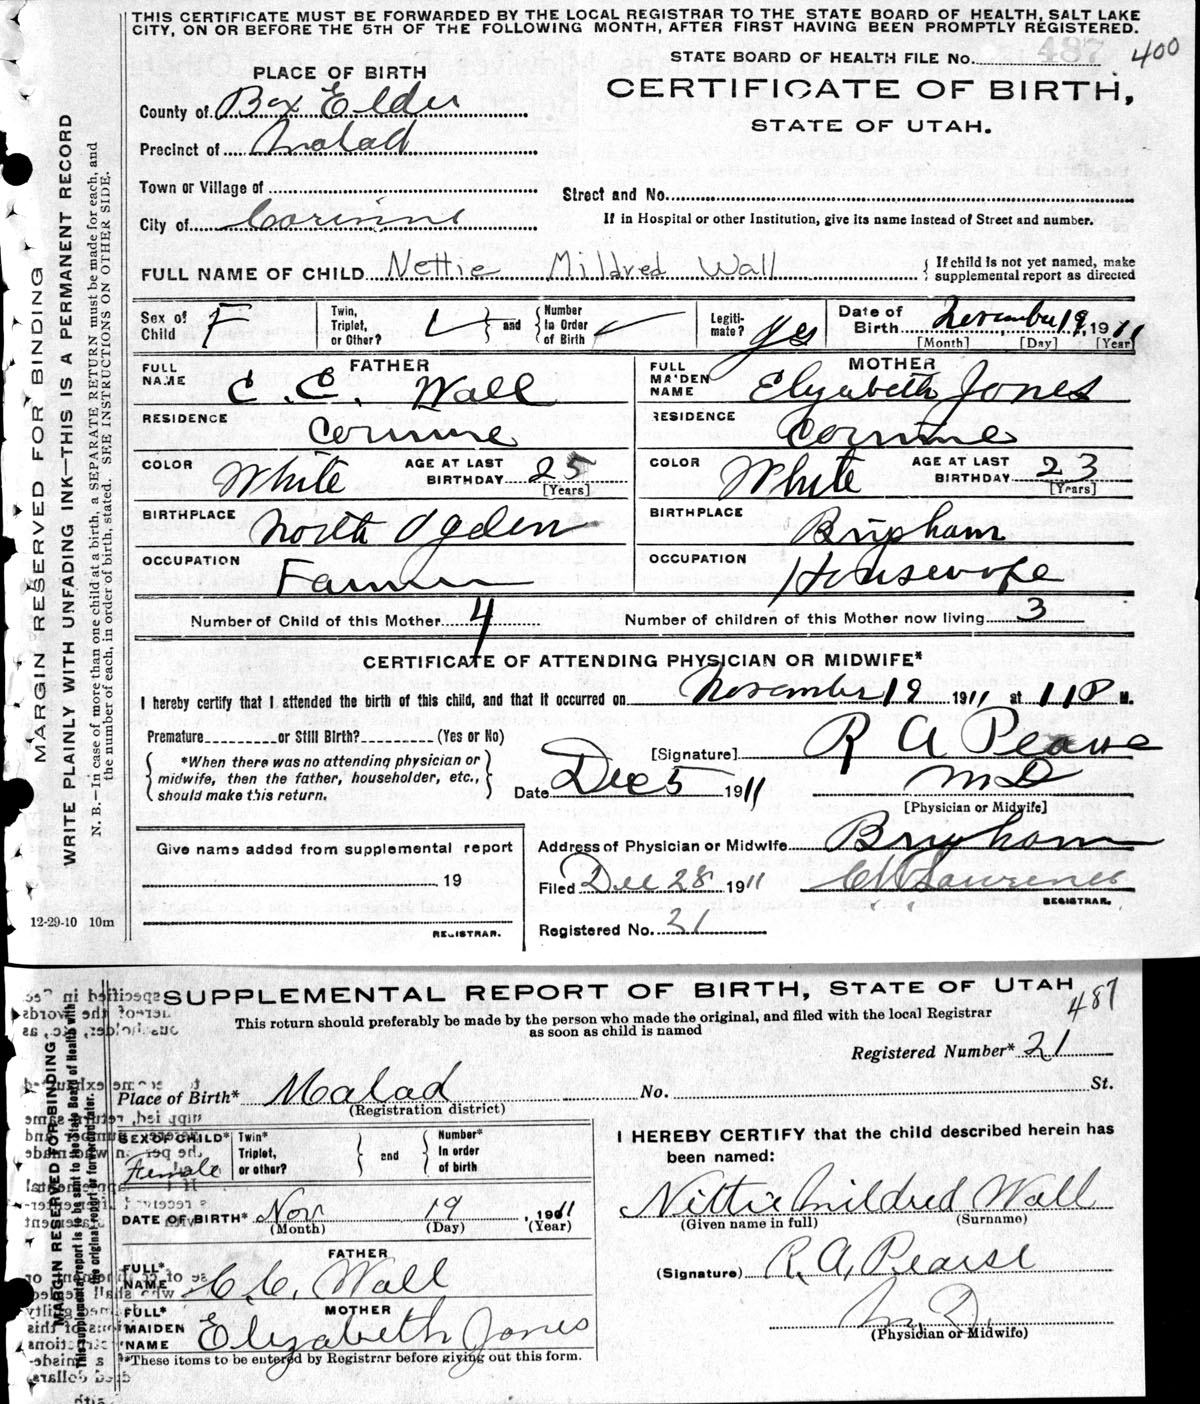 THIS CERTIFICATE MUST BE FORWARDED BY THE LOCAL REGISTRAR TO THE STATE BOARD OF HEALTH, SALT LAKE
CITY, ON OR BEFORE THE 5TH OF THE FOLLOWING MONTH, AFTER FIRST HAVING BEEN PROMPTLY REGISTERED.
487 400
STATE BOARD OF HEALTH FILE No.
PLACE OF BIRTH
CERTIFICATE OF BIRTH,
STATE OF UTAH.
County of Box Elder
Precinct of Malad
Town or Village of
Street and No.
City of Corinne
If in Hospital or other Institution, give its name instead of Street and number.
FULL NAME OF CHILD Nettie Mildred Wall { If child is not yet named, make supplemental report as directed
Sex of Child F Twin, Triplet, or Other? } and { Number In Order of Birth Legitimate? Yes Date of Birth November 19, 1911
[Month] [Day] [Year]
FATHER MOTHER
FULL NAME C. C. Wall FULL MAIDEN NAME Elyzabeth Jones
RESIDENCE Corinne RESIDENCE Corinne
COLOR White AGE AT LAST BIRTHDAY 25 [Years] COLOR White AGE AT LAST BIRTHDAY 23 [Years]
BIRTHPLACE North Ogden BIRTHPLACE Brigham
OCCUPATION Farmer OCCUPATION Housewife
Number of Child of this Mother 4 Number of children of this Mother now living 3
CERTIFICATE OF ATTENDING PHYSICIAN OR MIDWIFE*
I hereby certify that I attended the birth of this child, and that it occurred on November 19 1911 at 11 P M.
Premature or Still Birth? (Yes or No)
[Signature] R A Pearse
{ *When there was no attending physician or midwife, then the father, householder, etc., should make this return. }
M D
Date Dec 5 1911
[Physician or Midwife]
Give name added from supplemental report
Address of Physician or Midwife Brigham
19
Filed Dec 28 1911 C W Lawrence
REGISTRAR.
12-29-10 10m
REGISTRAR.
Registered No. 21
MARGIN RESERVED FOR BINDING
WRITE PLAINLY WITH UNFADING INK—THIS IS A PERMANENT RECORD
N. B.—In case of more than one child at a birth, a SEPARATE RETURN must be made for each, and
the number of each, in order of birth, stated. SEE INSTRUCTIONS ON OTHER SIDE.
SUPPLEMENTAL REPORT OF BIRTH, STATE OF UTAH
487
This return should preferably be made by the person who made the original, and filed with the local Registrar
as soon as child is named
Registered Number* 21
Place of Birth* Malad No. St.
(Registration district)
SEX OF CHILD* Female Twin* Triplet, or other? } and { Number* In order of birth
I HEREBY CERTIFY that the child described herein has
been named:
DATE OF BIRTH* Nov 19, 1911
(Month) (Day) (Year)
Nittie Mildred Wall
(Given name in full) (Surname)
FATHER
FULL* NAME C. C. Wall
(Signature) R. A. Pearse
MOTHER
FULL* MAIDEN NAME Elyzabeth Jones
M. D.
(Physician or Midwife)
*These items to be entered by Registrar before giving out this form.
MARGIN RESERVED FOR BINDING
This supplemental report is to be sent to the State Board of Health with
the original report or forwarded later.